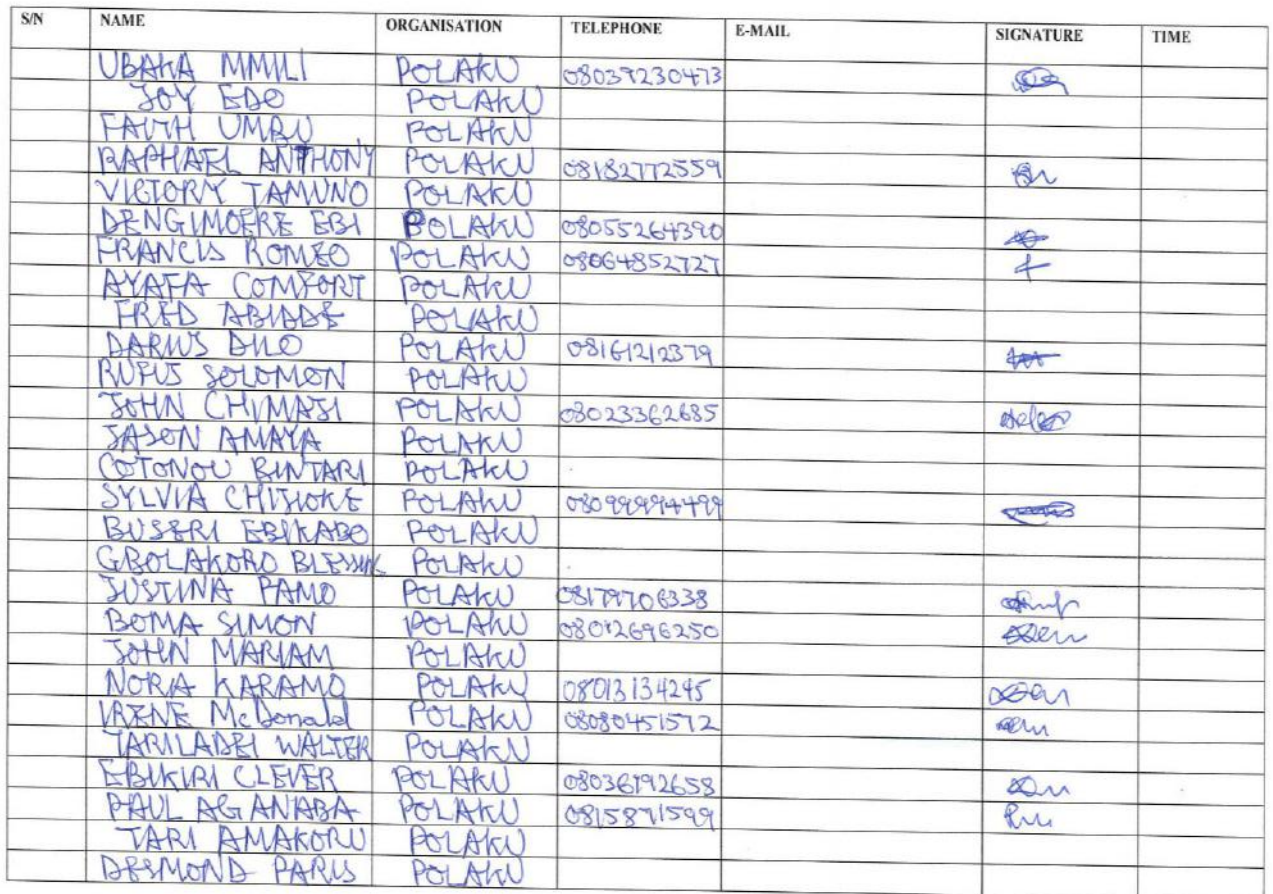 S/N NAME ORGANISATION TELEPHONE E-MAIL SIGNATURE TIME
UBAKA MMILI POLAKU 08039230473
JOY EDO POLAKU
FAITH UMBU POLAKU
RAPHAEL ANTHONY POLAKU 08182772559
VICTORY TAMUNO POLAKU
DENGIMOERE EBI POLAKU 08055264390
FRANCIS ROMEO POLAKU 08064852727
AYAFA COMFORT POLAKU
FRED ABIADE POLAKU
DARIUS DILO POLAKU 08161212379
RUFUS SOLOMON POLAKU
JOHN CHIMAJI POLAKU 08023362685
JASON AMAYA POLAKU
COTONOU BINTARI POLAKU
SYLVIA CHIJIOKE POLAKU 08099994499
BUSERI EBIKABO POLAKU
GBOLAKORO BLESSING POLAKU
JUSTINA PAMO POLAKU 08179706338
BOMA SIMON POLAKU 08012696250
JOHN MARIAM POLAKU
NORA KARAMO POLAKU 08013134245
IRENE McDonald POLAKU 08080451572
TARILADEI WALTER POLAKU
EBIKIRI CLEVER POLAKU 08036192658
PAUL AGANABA POLAKU 0815871599
TARI AMAKORU POLAKU
DESMOND PARIS POLAKU